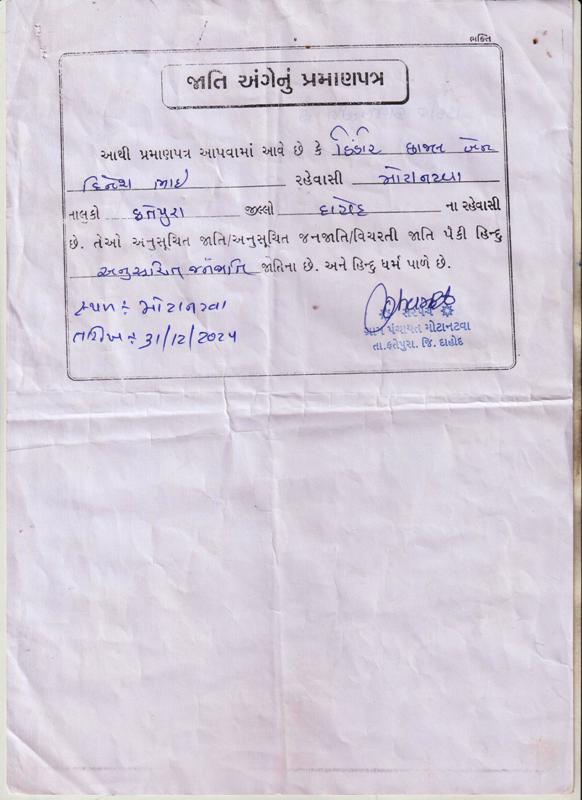 ભક્તિ
જાતિ અંગેનું પ્રમાણપત્ર
આથી પ્રમાણપત્ર આપવામાં આવે છે કે ડિંડોર કાજલ બેન
દિનેશ ભાઈ રહેવાસી મોટાનટવા
તાલુકો ફતેપુરા જીલ્લો દાહોદ ના રહેવાસી
છે. તેઓ અનુસુચિત જાતિ/અનુસુચિત જનજાતિ/વિચરતી જાતિ પૈકી હિન્દુ
અનુસુચિત જનજાતિ જાતિના છે. અને હિન્દુ ધર્મ પાળે છે.
સ્થળ : મોટાનટવા
તારીખ : 31/12/2024
સરપંચ
ગ્રામ પંચાયત મોટાનટવા
તા.ફતેપુરા. જિ. દાહોદ